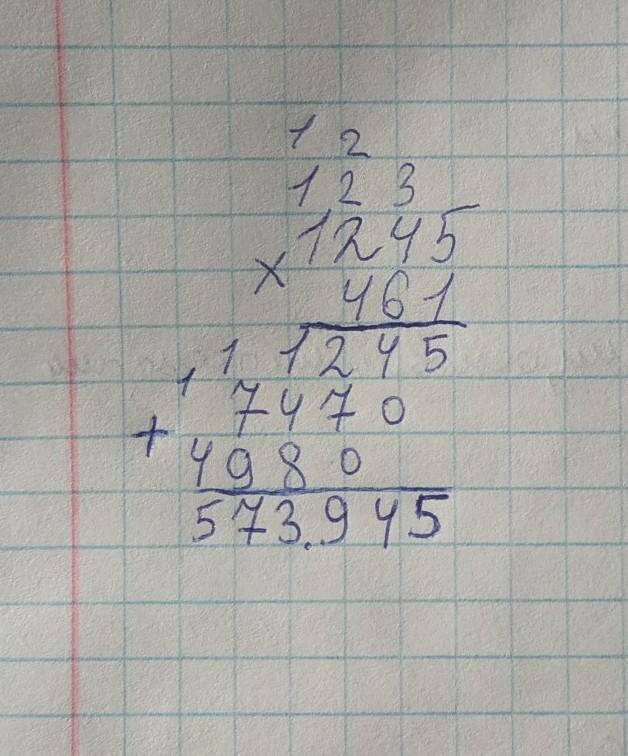 1 2
1 2 3
1245
× 461
1 1 1245
7470
+ 4980
573.945